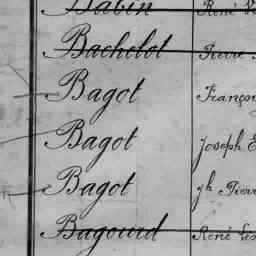 Babin René
Bachelot Pierre
Bagot
Bagot Joseph
Bagot jh Pierre
Bagourd René